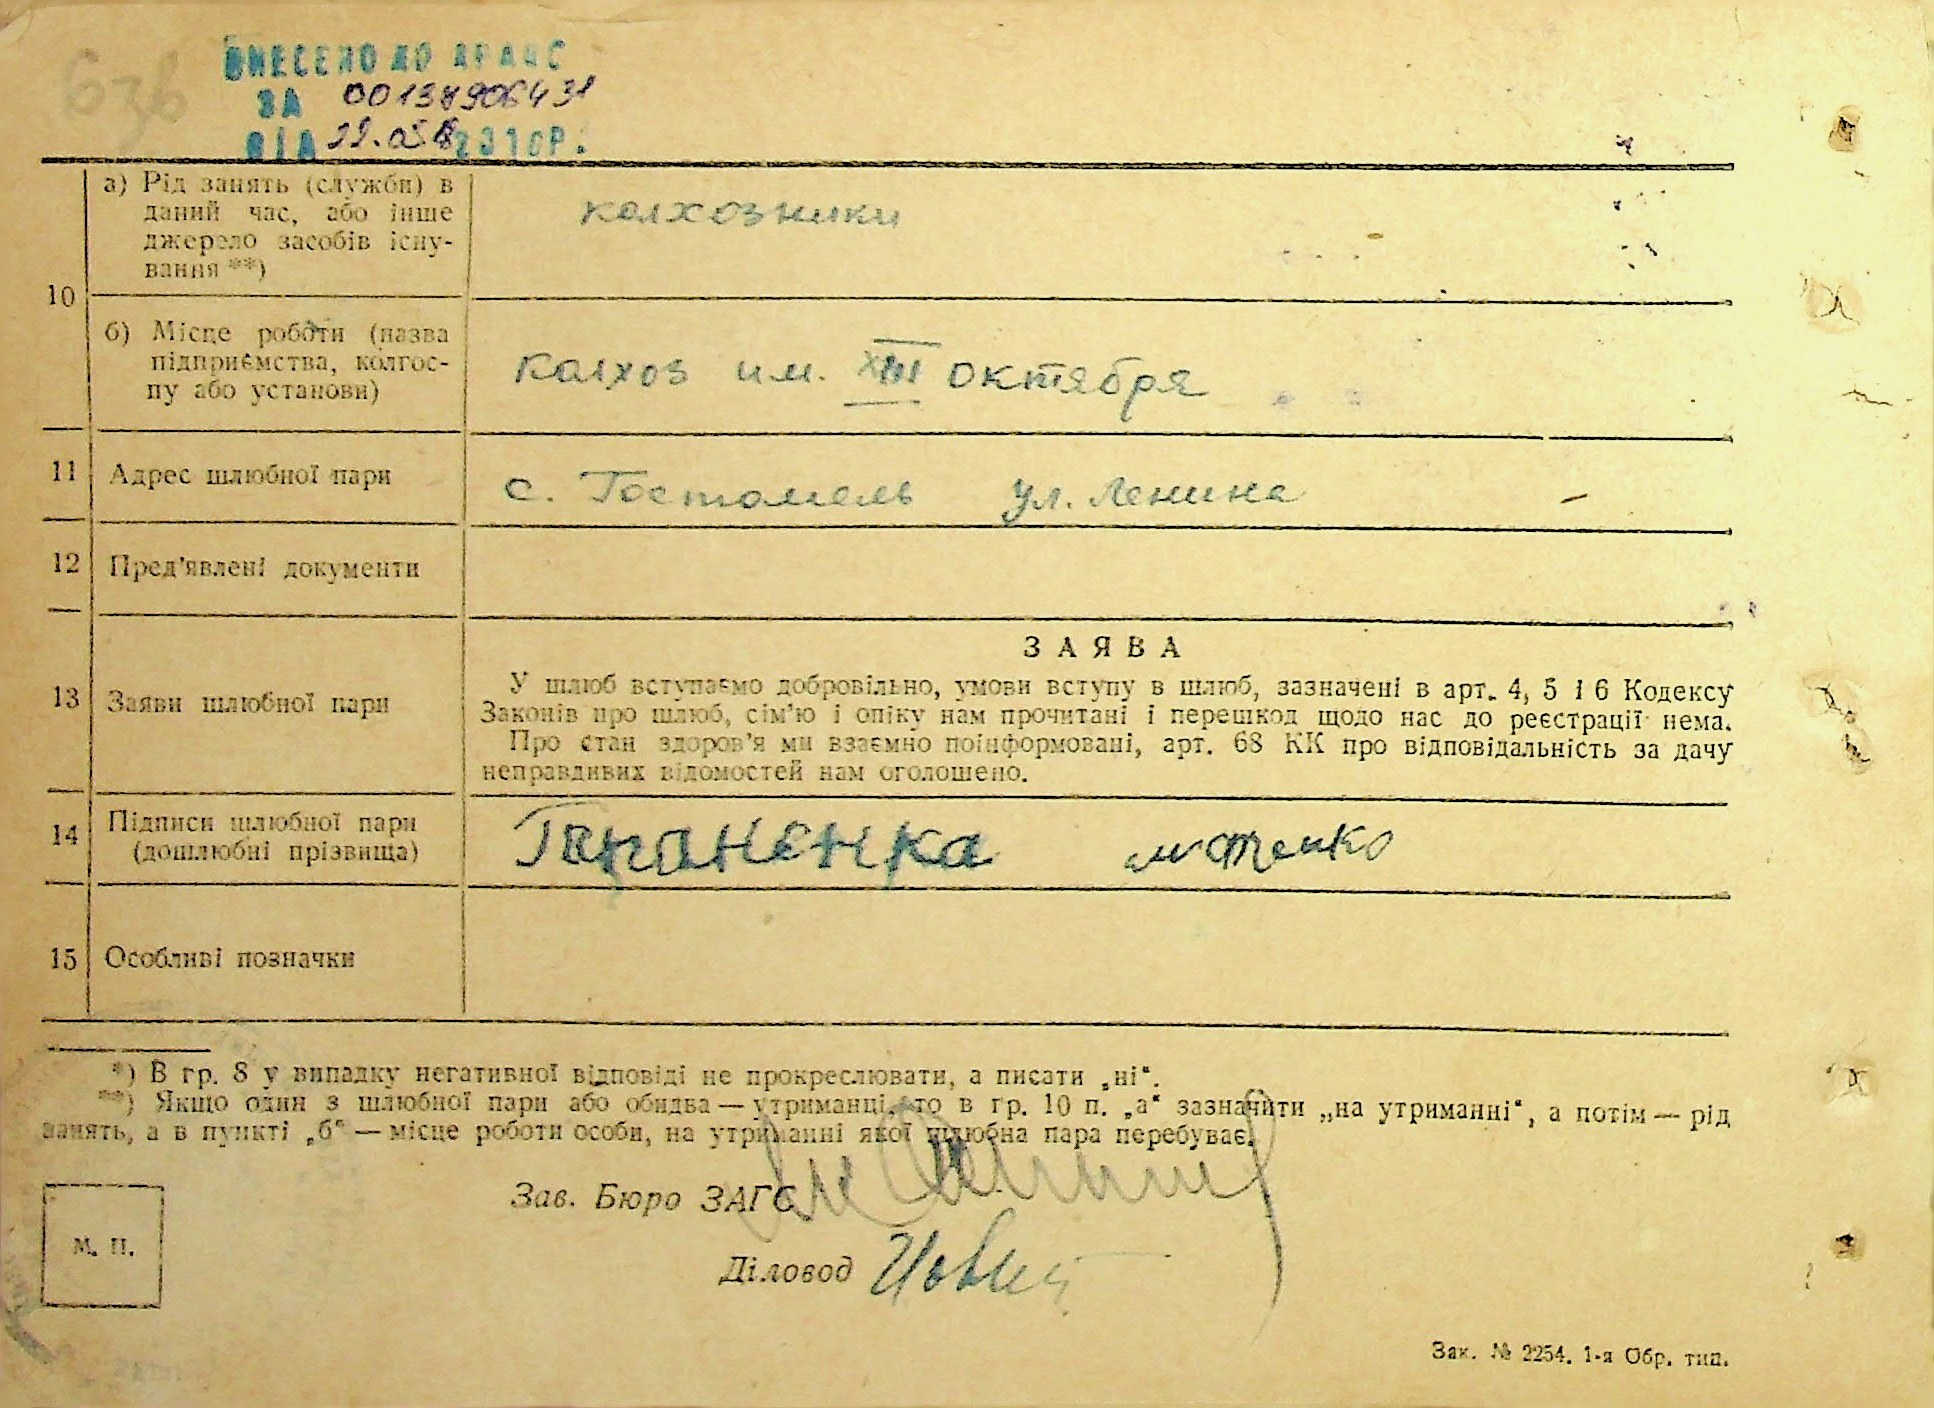 636
ВНЕСЕНО ДО ДРАЦС
ЗА 00138906431
ВІД
10
а) Рід занять (служби) в
даний час, або інше
джерело засобів існу-
вання **)
колхозники
б) Місце роботи (назва
підприємства, колгос-
пу або установи)
колхоз им. XIII октября
11
Адрес шлюбної пари
с. Гостомель ул. Ленина
12
Пред'явлені документи
13
Заяви шлюбної пари
ЗАЯВА
У шлюб вступаємо добровільно, умови вступу в шлюб, зазначені в арт. 4, 5 і 6 Кодексу
Законів про шлюб, сім'ю і опіку нам прочитані і перешкод щодо нас до реєстрації нема.
Про стан здоров'я ми взаємно поінформовані, арт. 68 КК про відповідальність за дачу
неправдивих відомостей нам оголошено.
14
Підписи шлюбної пари
(дошлюбні прізвища)
15
Особливі позначки
*) В гр. 8 у випадку негативної відповіді не прокреслювати, а писати „ні“.
**) Якщо один з шлюбної пари або обидва — утриманці, то в гр. 10 п. „а“ зазначити „на утриманні“, а потім — рід
занять, а в пункті „б“ — місце роботи особи, на утриманні якої шлюбна пара перебуває.
Зав. Бюро ЗАГС
М. П.
Діловод
Зак. № 2254. 1-я Обр. тип.